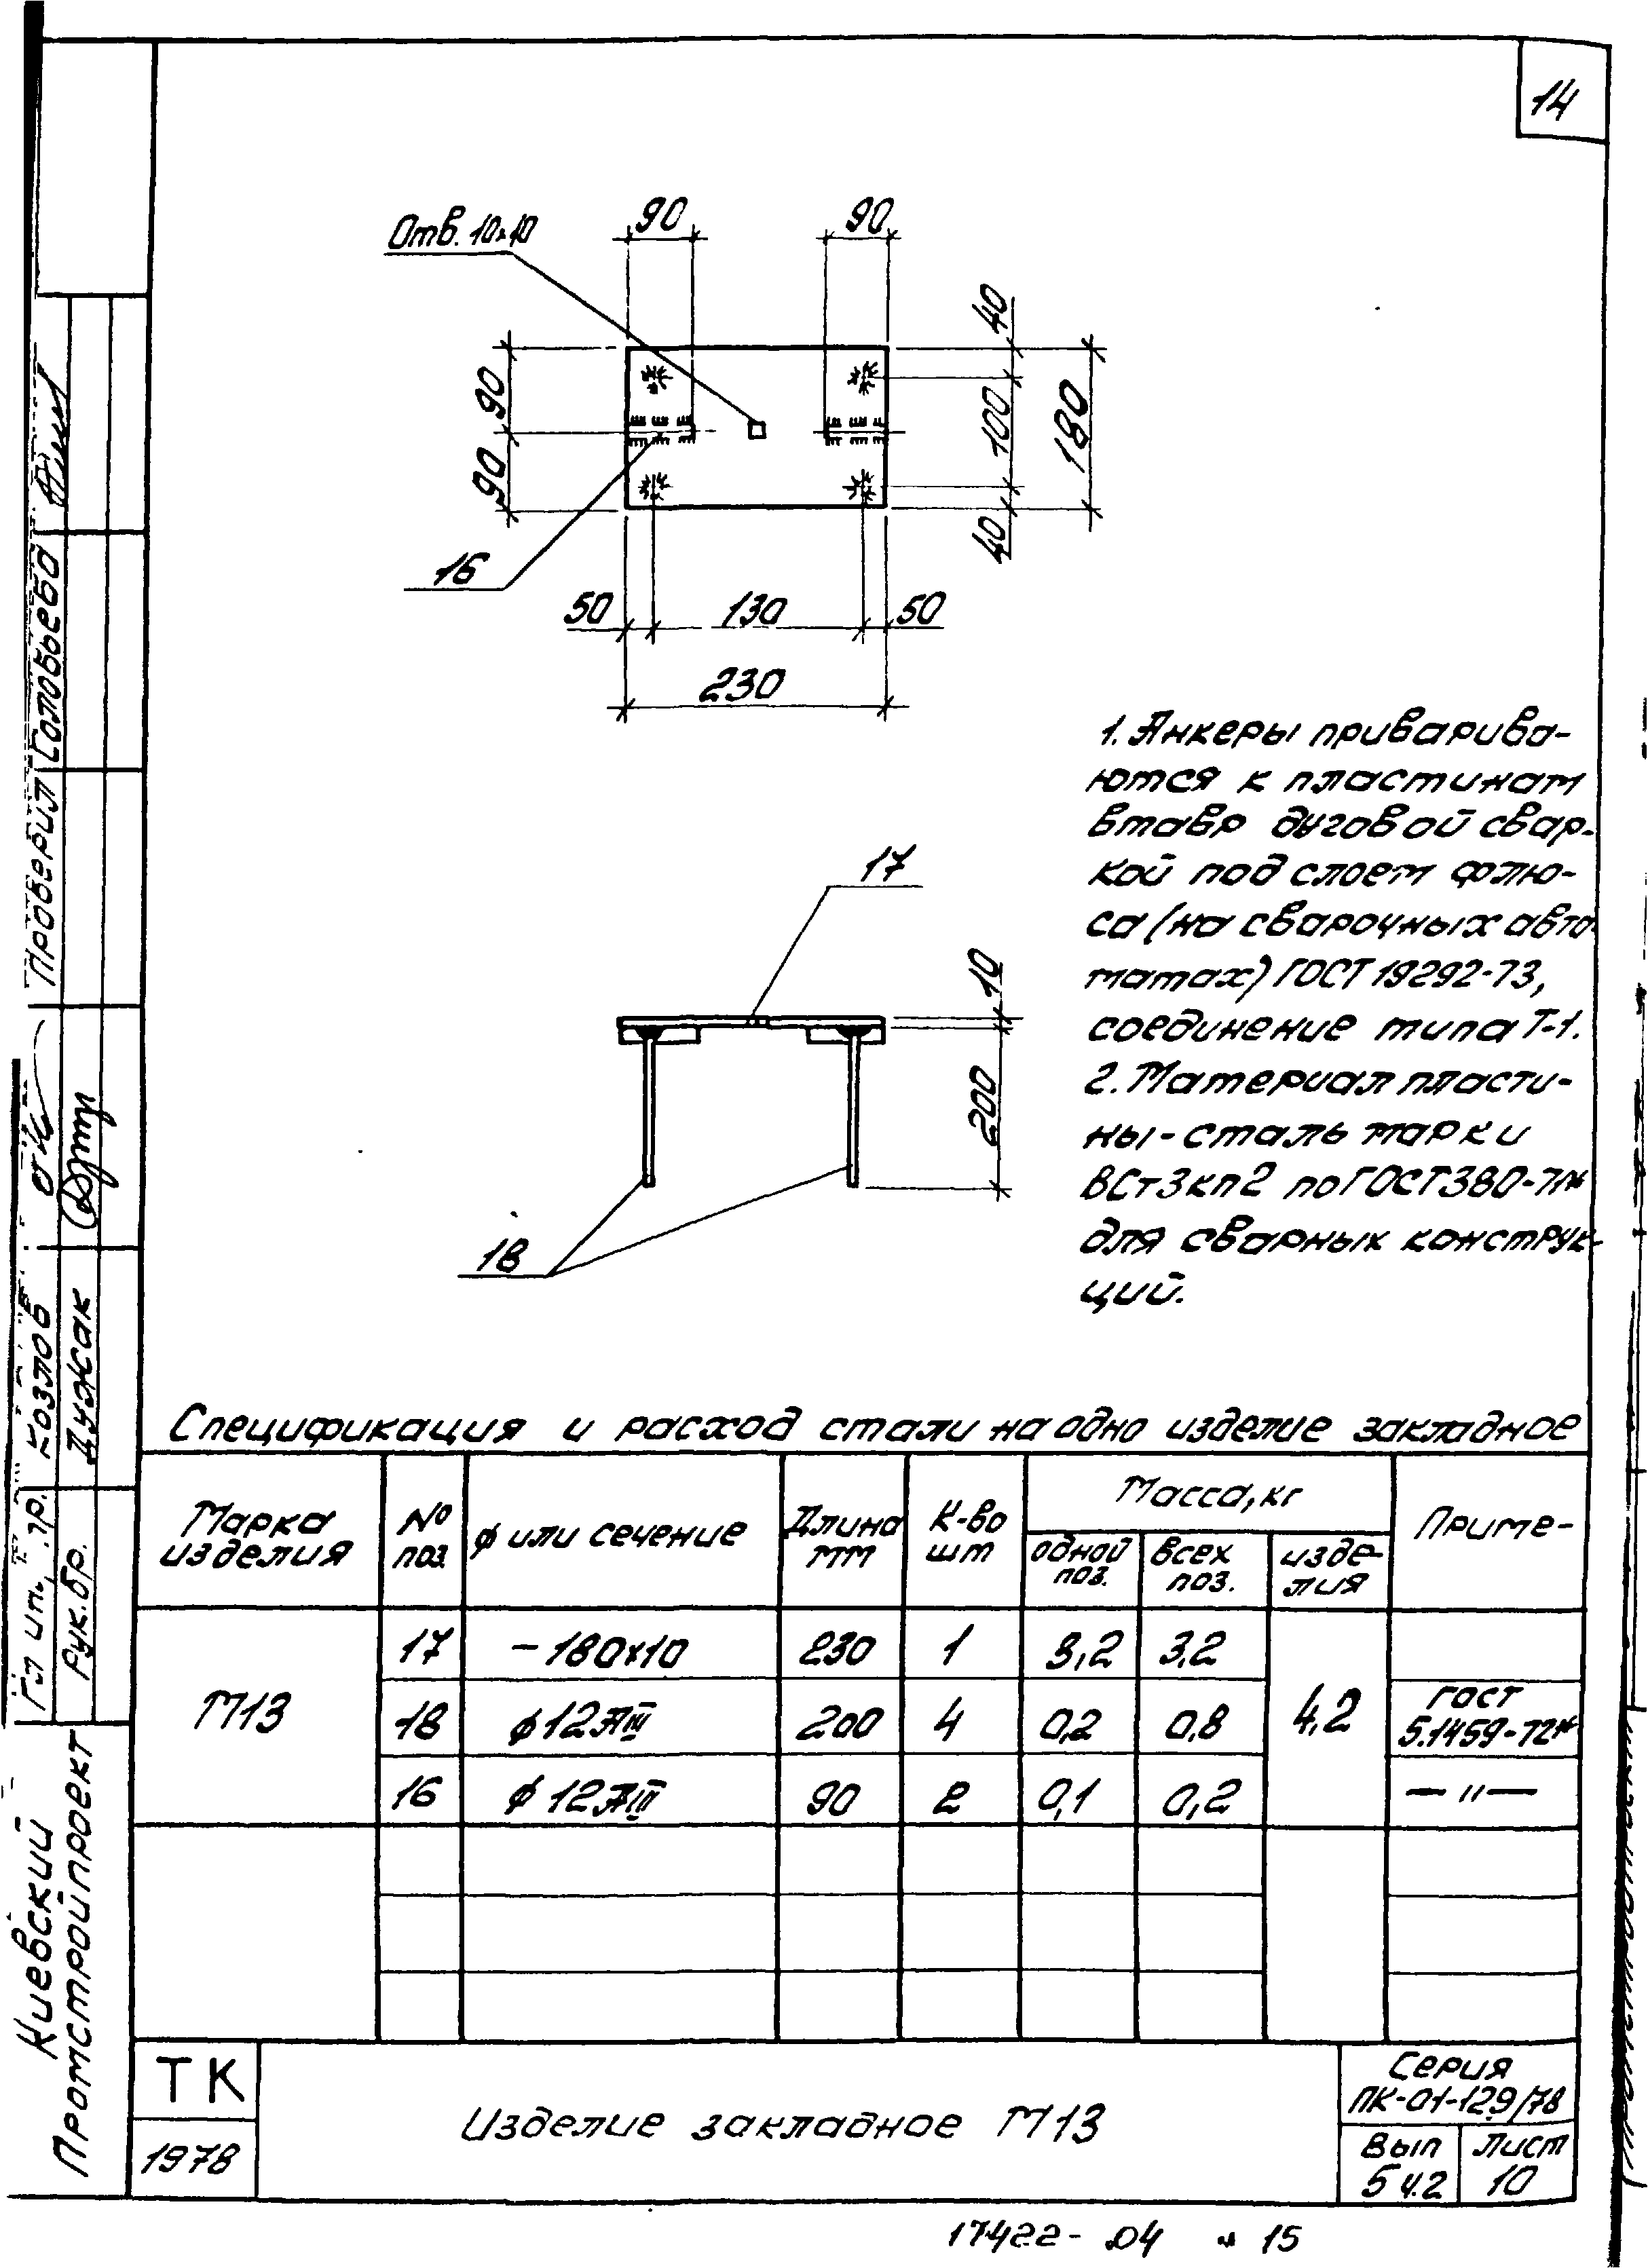 14
Отв. 10×10
90
90
40
90
100
180
90
40
16
50
130
50
230
1. Анкеры привариваютс-
ются к пластинам
втавр дуговой свар-
кой под слоем флю-
са (на сварочных авто-
матах) ГОСТ 19292-73,
соединение типа Т-1.
2. Материал пласти-
ны-сталь марки
ВСт3кп2 по ГОСТ 380-71*
для сварных конструк-
ций.
17
10
200
18
Спецификация и расход стали на одно изделие закладное
Марка изделия | № поз. | ф или сечение | Длина мм | К-во шт | Масса, кг | Приме-
одной поз. | всех поз. | изде-лия
М13 | 17 | -180×10 | 230 | 1 | 3,2 | 3,2 | 4,2
18 | ф12АIII | 200 | 4 | 0,2 | 0,8 | ГОСТ 5.1459-72*
16 | ф12АIII | 90 | 2 | 0,1 | 0,2 | — " —
ТК
1978
Изделие закладное М13
Серия
ПК-01-129/78
Вып
5 ч.2
Лист
10
17422-04
15
Проверил Соловьева
Козлов
Рук.бр. Дужак
Киевский
Промстройпроект